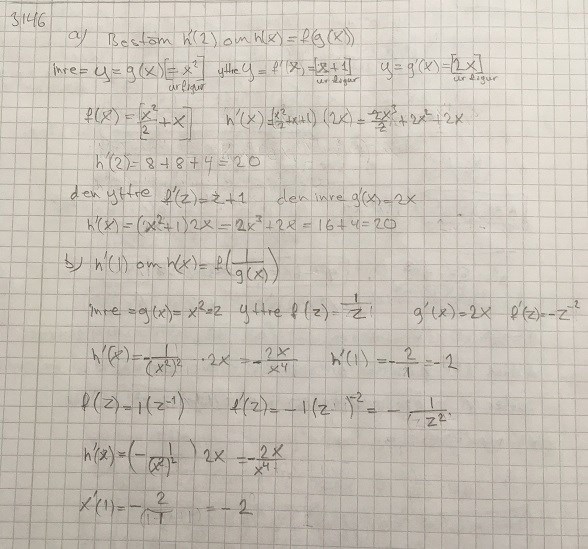 3146
a) Bestäm h'(2) om h(x) = f(g(x))
inre = y = g(x) [= x²] yttre y = f'(x) = [x+1] y = g'(x) = [2x]
ur figur ur figur ur figur
f(x) = [x²/2 + x] h'(x) = (x²/2 + x + 1) (2x) = 2x³/2 + 2x² + 2x
h'(2) = 8 + 8 + 4 = 20
den yttre f'(z) = z + 1 den inre g'(x) = 2x
h'(x) = (x² + 1) 2x = 2x³ + 2x = 16 + 4 = 20
b) h'(1) om h(x) = f(1/g(x))
inre = g(x) = x² = z yttre f(z) = 1/z g'(x) = 2x f'(z) = -z⁻²
h'(x) = -1/(x²)² · 2x = -2x/x⁴ h'(1) = -2/1 = -2
f(z) = 1(z⁻¹) f'(z) = -1(z)⁻² = -1/z²
h'(x) = (-1/(x²)²) 2x = -2x/x⁴
x'(1) = -2/1 = -2